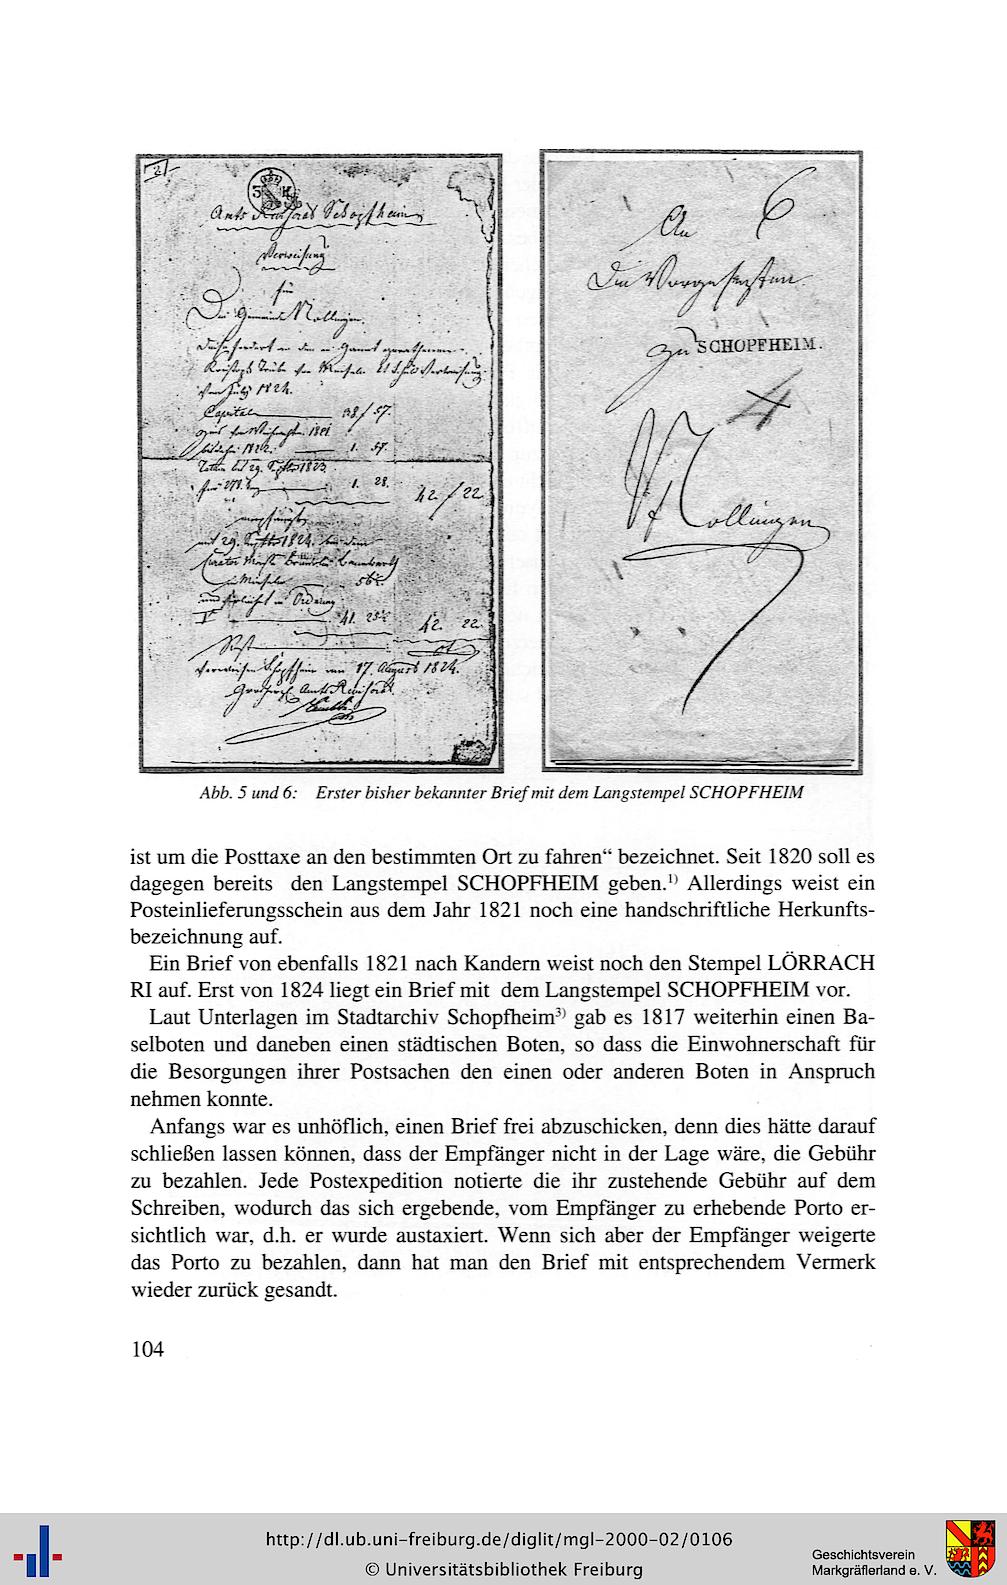 2
3 K
Amts Revisorat Schopfheim
Verweisung
für
Die Gemeinde Nollingen
Capital 38 / 57.
1. 57.
1. 28.
42 / 22
41. 25
42. 22.
Rest
17. August 1824.
An 6
Die Vorgesetzten
zu SCHOPFHEIM.
4
Nollingen
Abb. 5 und 6: Erster bisher bekannter Brief mit dem Langstempel SCHOPFHEIM
ist um die Posttaxe an den bestimmten Ort zu fahren“ bezeichnet. Seit 1820 soll es
dagegen bereits den Langstempel SCHOPFHEIM geben.1) Allerdings weist ein
Posteinlieferungsschein aus dem Jahr 1821 noch eine handschriftliche Herkunfts-
bezeichnung auf.
Ein Brief von ebenfalls 1821 nach Kandern weist noch den Stempel LÖRRACH
RI auf. Erst von 1824 liegt ein Brief mit dem Langstempel SCHOPFHEIM vor.
Laut Unterlagen im Stadtarchiv Schopfheim3) gab es 1817 weiterhin einen Ba-
selboten und daneben einen städtischen Boten, so dass die Einwohnerschaft für
die Besorgungen ihrer Postsachen den einen oder anderen Boten in Anspruch
nehmen konnte.
Anfangs war es unhöflich, einen Brief frei abzuschicken, denn dies hätte darauf
schließen lassen können, dass der Empfänger nicht in der Lage wäre, die Gebühr
zu bezahlen. Jede Postexpedition notierte die ihr zustehende Gebühr auf dem
Schreiben, wodurch das sich ergebende, vom Empfänger zu erhebende Porto er-
sichtlich war, d.h. er wurde austaxiert. Wenn sich aber der Empfänger weigerte
das Porto zu bezahlen, dann hat man den Brief mit entsprechendem Vermerk
wieder zurück gesandt.
104
http://dl.ub.uni-freiburg.de/diglit/mgl-2000-02/0106
© Universitätsbibliothek Freiburg
Geschichtsverein
Markgräflerland e. V.